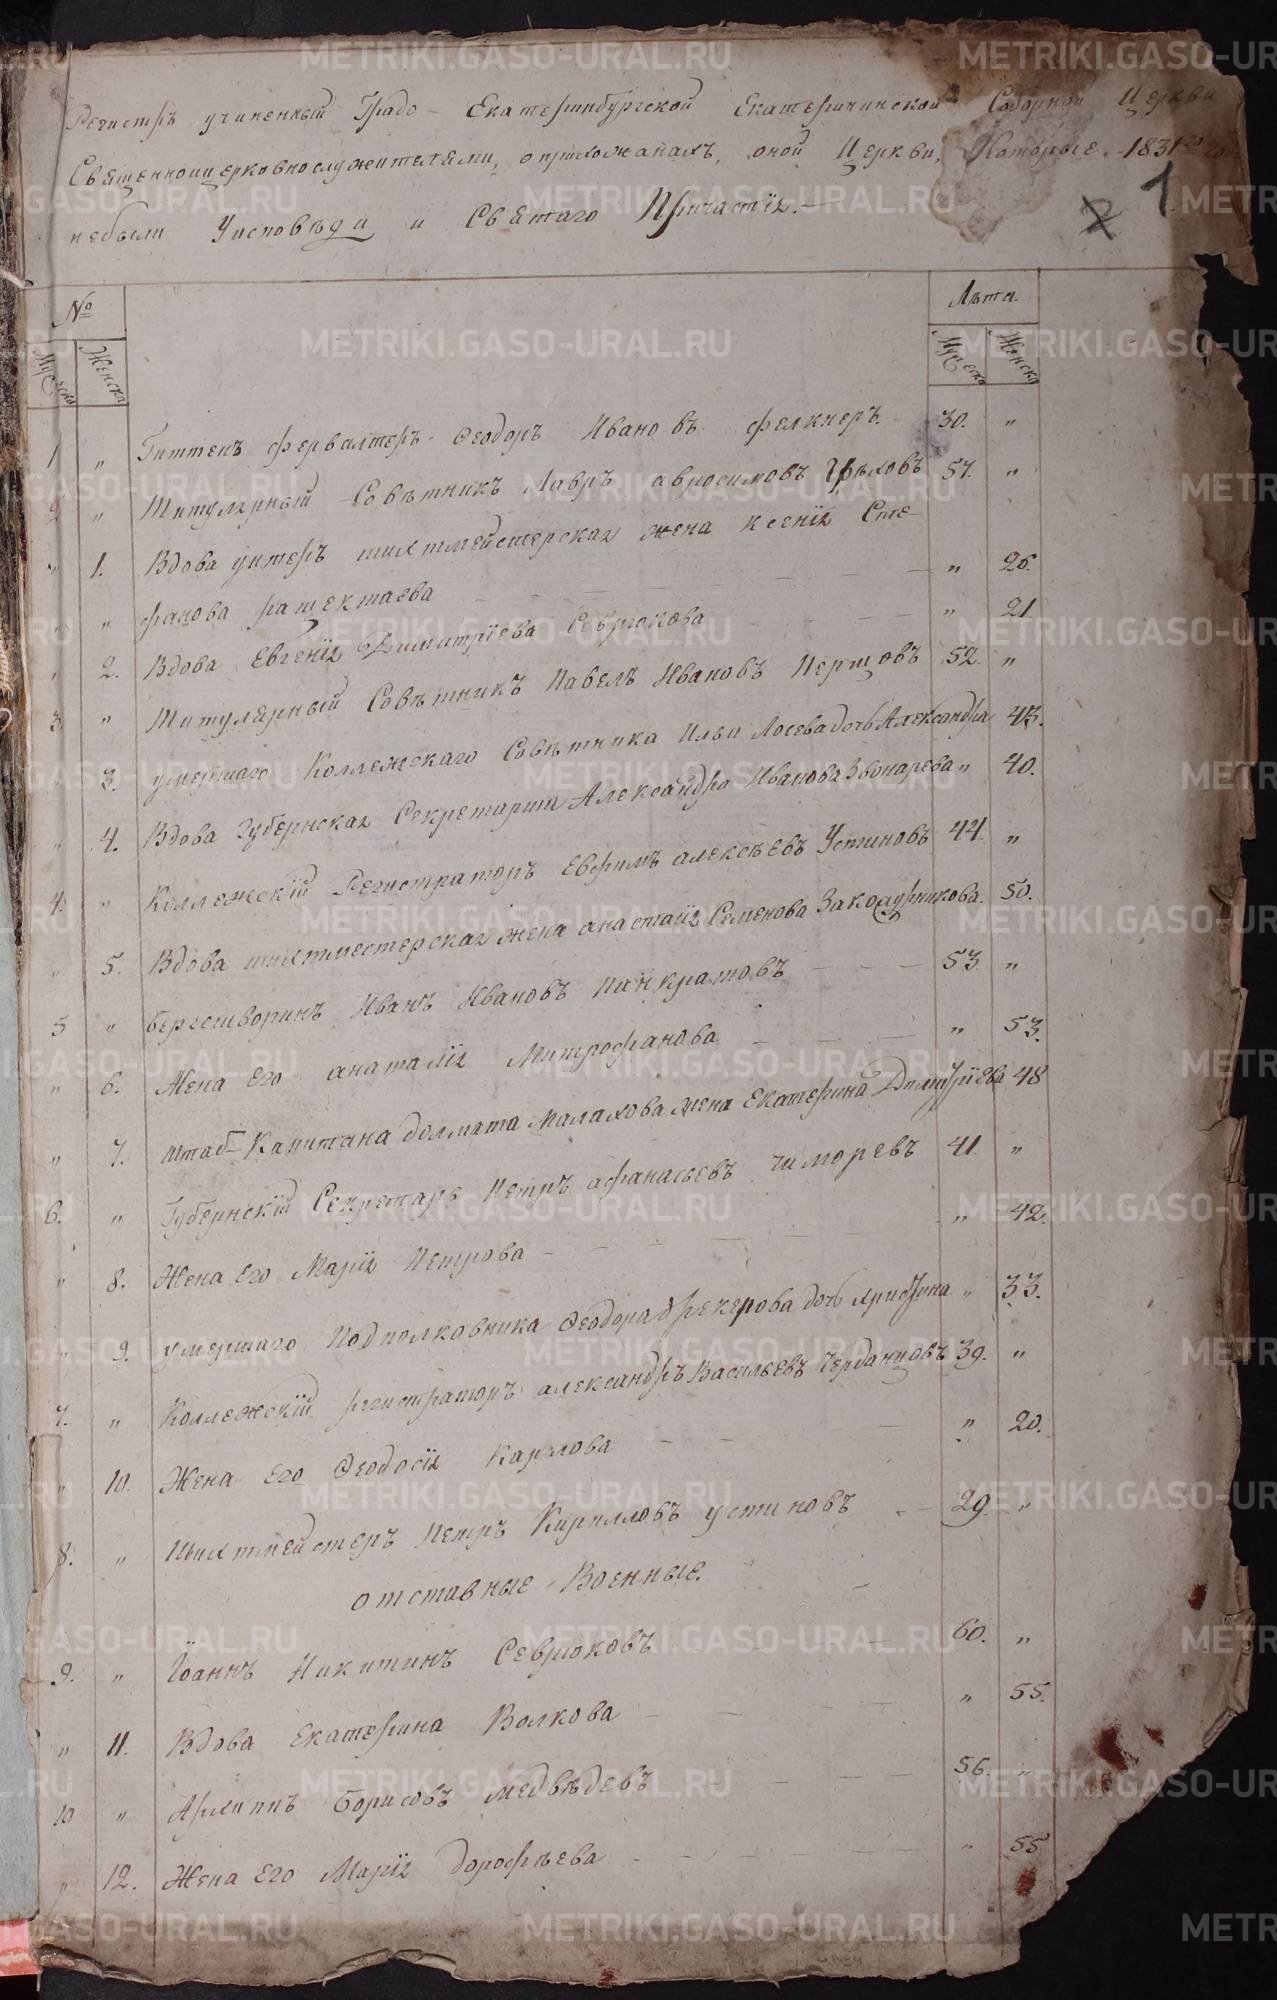 Регистръ учиненный Градо-Екатеринбургской Екатерининской Соборной Церкви
Священноицерковнослужителями, оприхожанахъ, оной Церкви, Которые 1831го
небыли Уисповѣди и Святаго Причастія.-
1
2
№ Лѣта.
Муческа Женска Муческа Женска
1 „ Гиттенъ фервалтеръ Ѳеодоръ Ивановъ фелкнеръ. 30. „
2 „ Титулярный Совѣтникъ Лавръ авросимовъ Грѣховъ 57. „
„ 1. Вдова унтеръ шихтмейстерская жена ксенія Сте-
„ „ фанова „ 26.
„ 2. Вдова Евгенія Димитріева Севрюкова „ 21
3. „ Титулярный Совѣтникъ Павелъ Ивановъ Перщовъ 52. „
„ 3. умершаго Коллежскаго Совѣтника Ильи Лосева дочь Александра 43.
„ 4. Вдова Губернская Секретарша Александра Иванова Звонарева „ 40.
4. „ Коллежскій Регистраторъ Евфимъ алексѣевъ Устиновъ 44. „
„ 5. Вдова шихтместерская жена анастаія Семенова Закожурникова. 50.
5 „ бергешворинъ Иванъ Ивановъ Панкратовъ 53. „
„ 6. Жена Его анаталія Митрофанова „ 53.
„ 7. штаб-Капитана долмата Малахова жена Екатерина Димитріева 48
6. „ Губернскій Секретарь Петръ афанасьевъ чиморевъ 41. „
„ 8. Жена Его Марія Петрова „ 42.
„ 9. умершаго Подполковника Ѳеодора дочь Христина „ 33.
7. „ Коллежскій регистраторъ александръ Васильевъ Чербанцовъ 39. „
„ 10. Жена Его Ѳеодосія Карпова „ 20.
8. „ Шихтмейстеръ Петръ Кирилловъ устиновъ 29. „
отставные Военные.
9. „ Іоаннъ Никитинъ Севрюковъ 60. „
„ 11. Вдова Екатерина Волкова „ 55.
10 „ Архипъ Борисовъ медвѣдевъ 56. „
„ 12. Жена Его Марія дорофѣева „ 55
METRIKI.GASO-URAL.RU